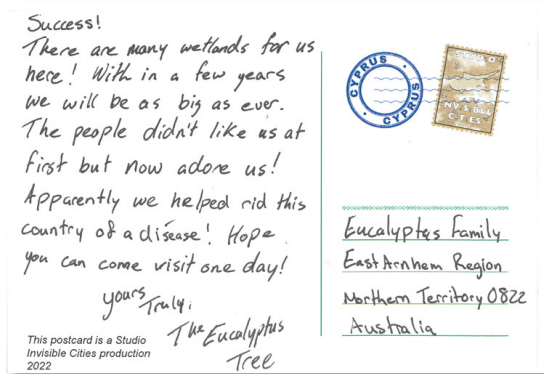 Success!
There are many wetlands for us
here! With in a few years
we will be as big as ever.
The people didn't like us at
first but now adore us!
Apparently we helped rid this
country of a disease! Hope
you can come visit one day!
yours Truly,
The Eucalyptus
Tree
This postcard is a Studio
Invisible Cities production
2022
CYPRUS
CYPRUS
CITIES
Eucalyptus Family
East Arnhem Region
Northern Territory 0822
Australia